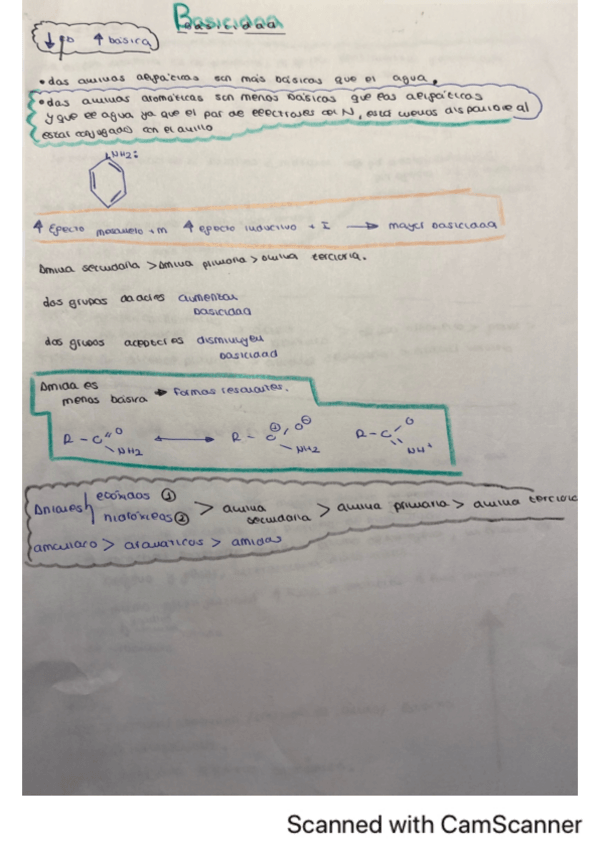 Basicidad
↓ pb ↑ básica
• Las aminas alifáticas son más básicas que el agua.
• Las aminas aromáticas son menos básicas que las alifáticas
y que el agua ya que el par de electrones del N, está menos disponible al
estar conjugado con el anillo
NH2:
↑ Efecto mesómero +m ↑ efecto inductivo + I → mayor basicidad
Amina secundaria > Amina primaria > amina terciaria.
Los grupos dadores aumentan
basicidad
Los grupos aceptores disminuyen
basicidad
Amida es
menos básica → formas resonantes.
R - C O NH2 ↔ R - C ⊕ O ⊖ NH2 R - C O NH
Aniones alcóxidos ① > amina secundaria > amina primaria > amina terciaria
hidróxidos ②
amoniaco > aromáticas > amidas
Scanned with CamScanner